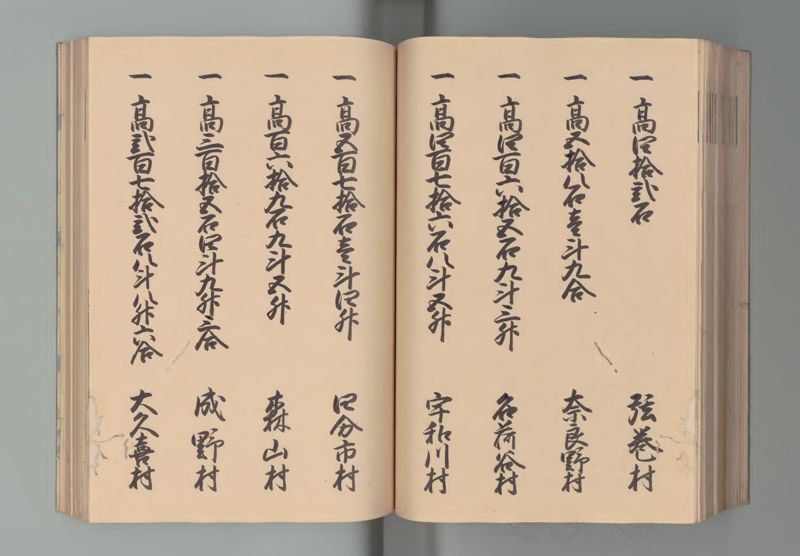 一 高四拾弐石 弦巻村
一 高五拾八石壱斗九合 奈良野村
一 高四百六拾五石九斗三升 名荷谷村
一 高四百七拾六石八斗五升 宇和川村
一 高五百七拾石壱斗四升 国分市村
一 高百六拾九石九斗五升 森山村
一 高三百拾五石四斗九升三合 成野村
一 高弐百七拾弐石八斗八升六合 大久喜村